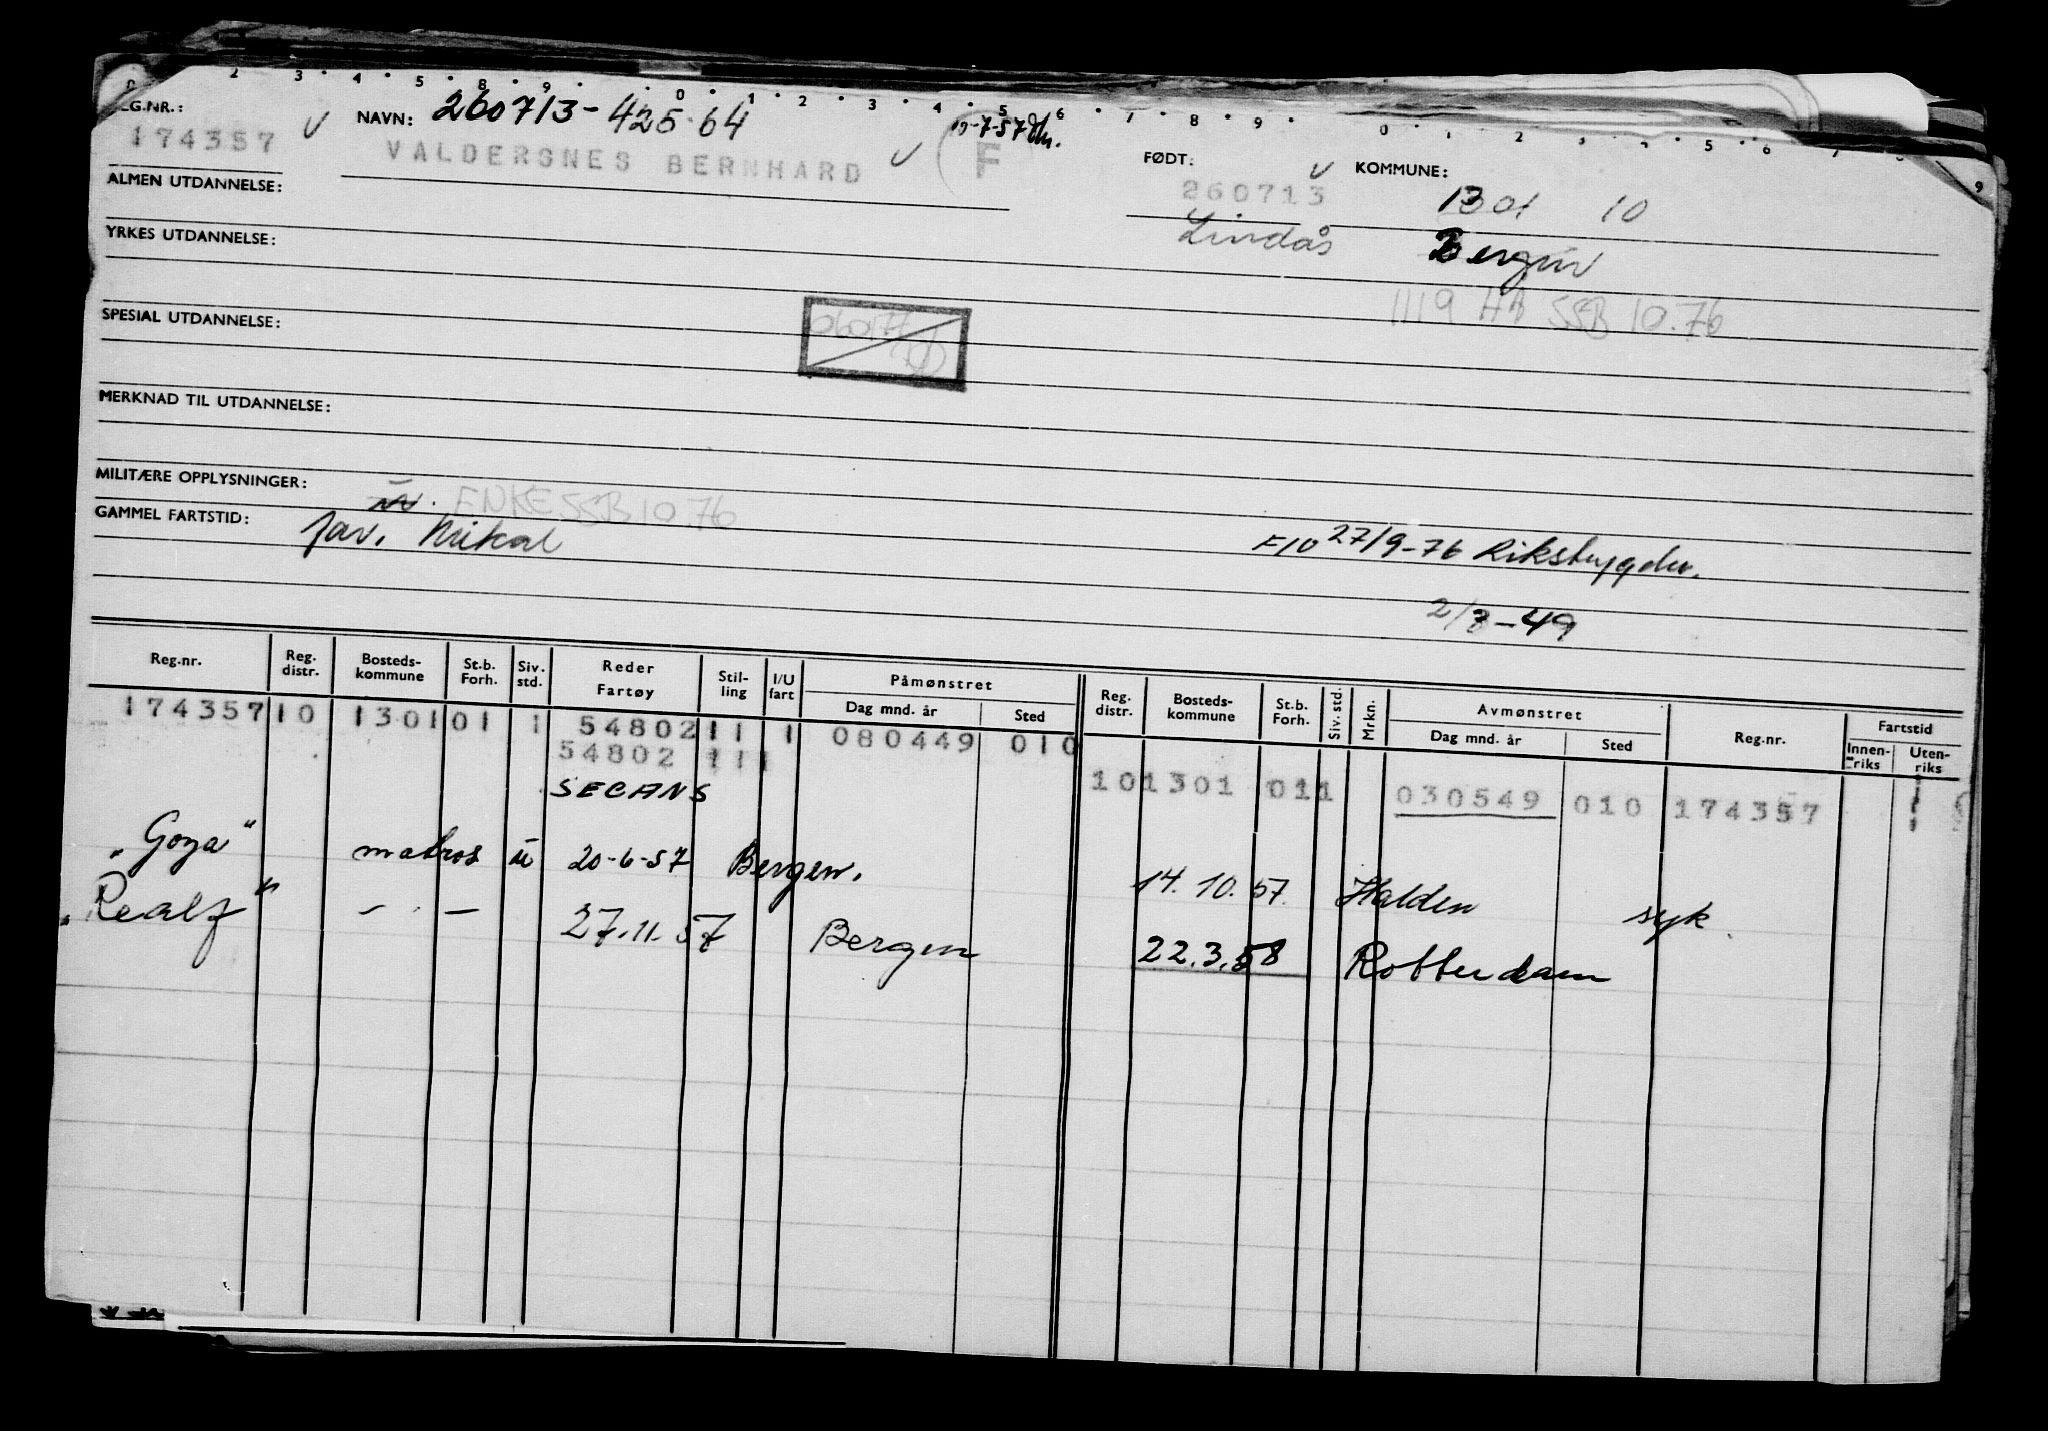 REG.NR.: NAVN: 260713-425.64
174357 VALDERSNES BERNHARD F
FØDT: 260713 KOMMUNE: 1301 10
Lindås Bergen
1119 HA SSB 10.76
ALMEN UTDANNELSE:
YRKES UTDANNELSE:
SPESIAL UTDANNELSE:
MERKNAD TIL UTDANNELSE:
MILITÆRE OPPLYSNINGER: ENKE SSB 10.76
GAMMEL FARTSTID: Far. Mikal
F10 27/9-76 Riksbygder.
2/8-49
Reg.nr. Reg. distr. Bosteds-kommune St.b. Forh. Siv. std. Reder Fartøy Stil-ling I/U fart Påmønstret Dag mnd. år Sted Reg. distr. Bosteds-kommune St.b. Forh. Siv. std. Mrkn. Avmønstret Dag mnd. år Sted Reg.nr. Fartstid Innen-riks Uten-riks
174357 10 1301 01 1 54802 11 1 080449 010
54802 111
SECANS 10 1301 01 1 030549 010 174357
"Goya" matros u 20-6-57 Bergen. 14.10.57. Halden syk
"Realf" — . — 27.11.57 Bergen 22.3.58 Rotterdam